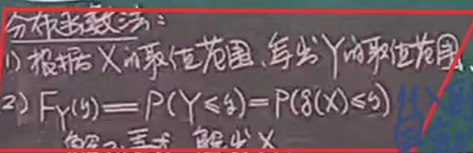 分布函数法：
1) 根据X的取值范围、写出Y的取值范围
2) F_Y(y)==P(Y≤y)=P(g(X)≤y)
解出X